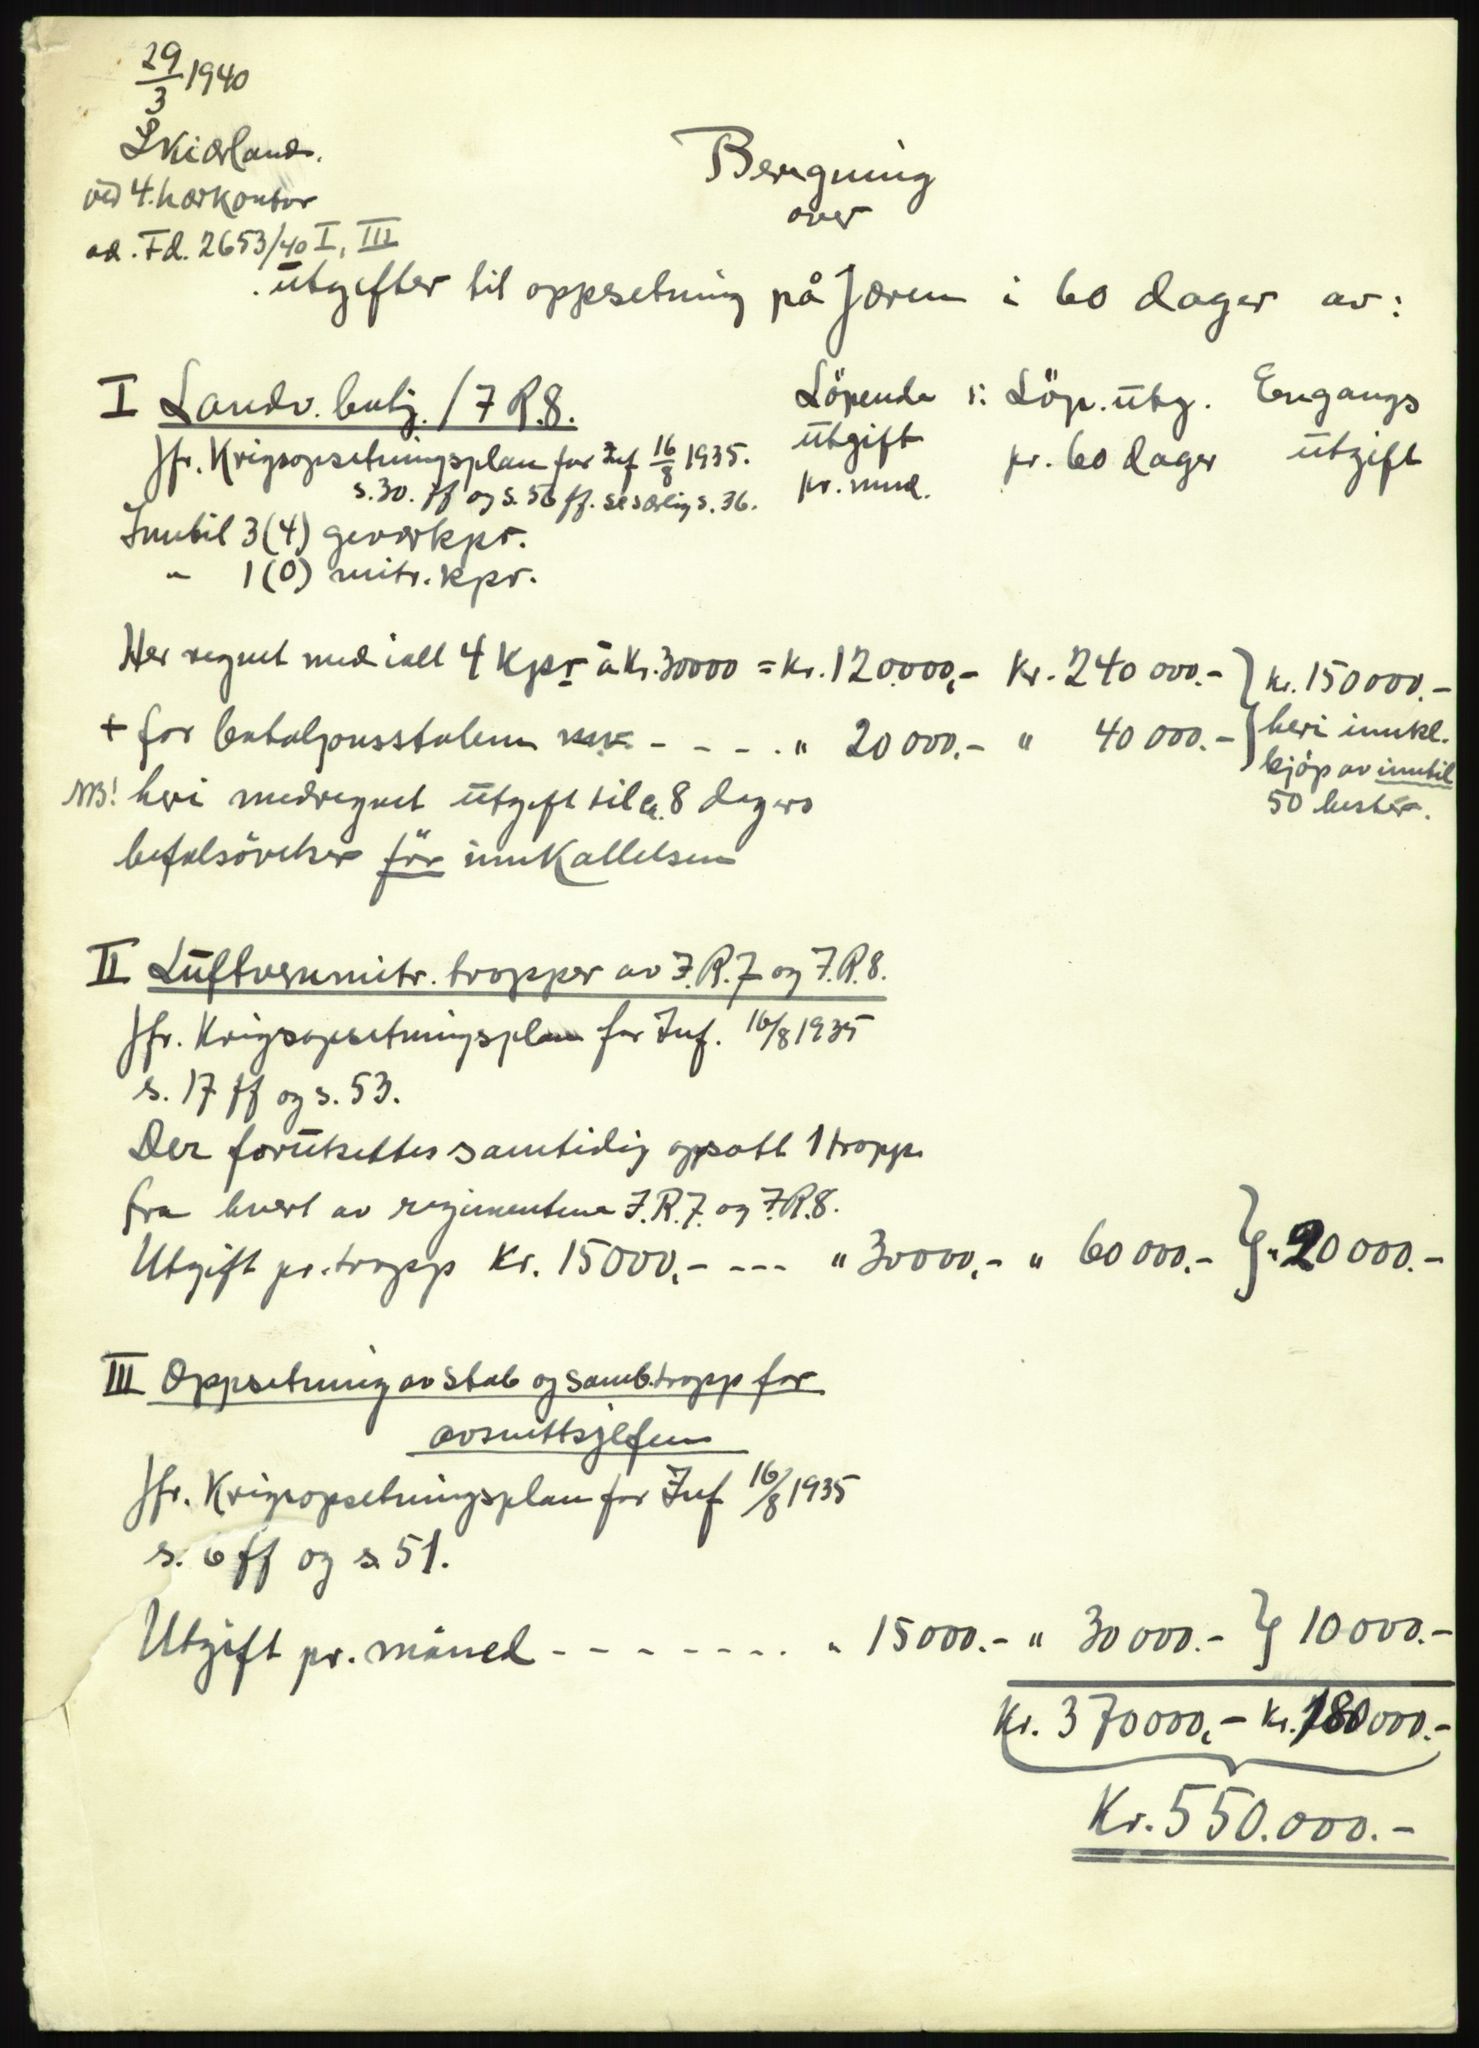 29/3 1940
Skiærland.
ved 4. hærkontor
ad. Fd. 2653/40 I, III
Beregning
over
utgifter til oppsetning på Jæren i 60 dager av:
I Landv. batj. / I R. 8. Löpende s: Löp. utg. Engangs
Jfr. Krigsopsetningsplan for Inf 16/8 1935. utgift pr. 60 dager utgift
s. 30. ff og s. 56 ff. se særlig s. 36. pr. mnd.
Inntil 3 (4) geværkpr.
" 1 (0) mitr. kpr.
Her regnet med ialt 4 kpr à kr. 30000 = kr. 120.000,- kr. 240 000.- } kr. 150000.-
+ for bataljonsstaben - - - . " 20 000.- " 40 000.- } heri innkl.
kjöp av inntil
NB! heri medregnet utgift til ca. 8 dagers 50 hester.
befalsövelser för innkallelsen
II Luftvernmitr. tropper av I.R. 7 og I.R. 8.
Jfr. Krigsopsetningsplan for Inf. 16/8 1935
s. 17 ff og s. 53.
Der forutsettes samtidig opsatt 1 tropp
fra hvert av regimentene I.R. 7. og I.R. 8.
Utgift pr. tropp kr. 15000,- --- " 30000,- " 60 000.- } " 20 000.-
III Oppsetning av stab og samb. tropp for
avsnittsjefen
Jfr. Krigsopsetningsplan for Inf 16/8 1935
s. 6 ff og s. 51.
Utgift pr. måned - - - - - - - . " 15000.- " 30 000.- } 10 000.-
Kr. 370000,- Kr. 180 000.-
Kr. 550.000.-